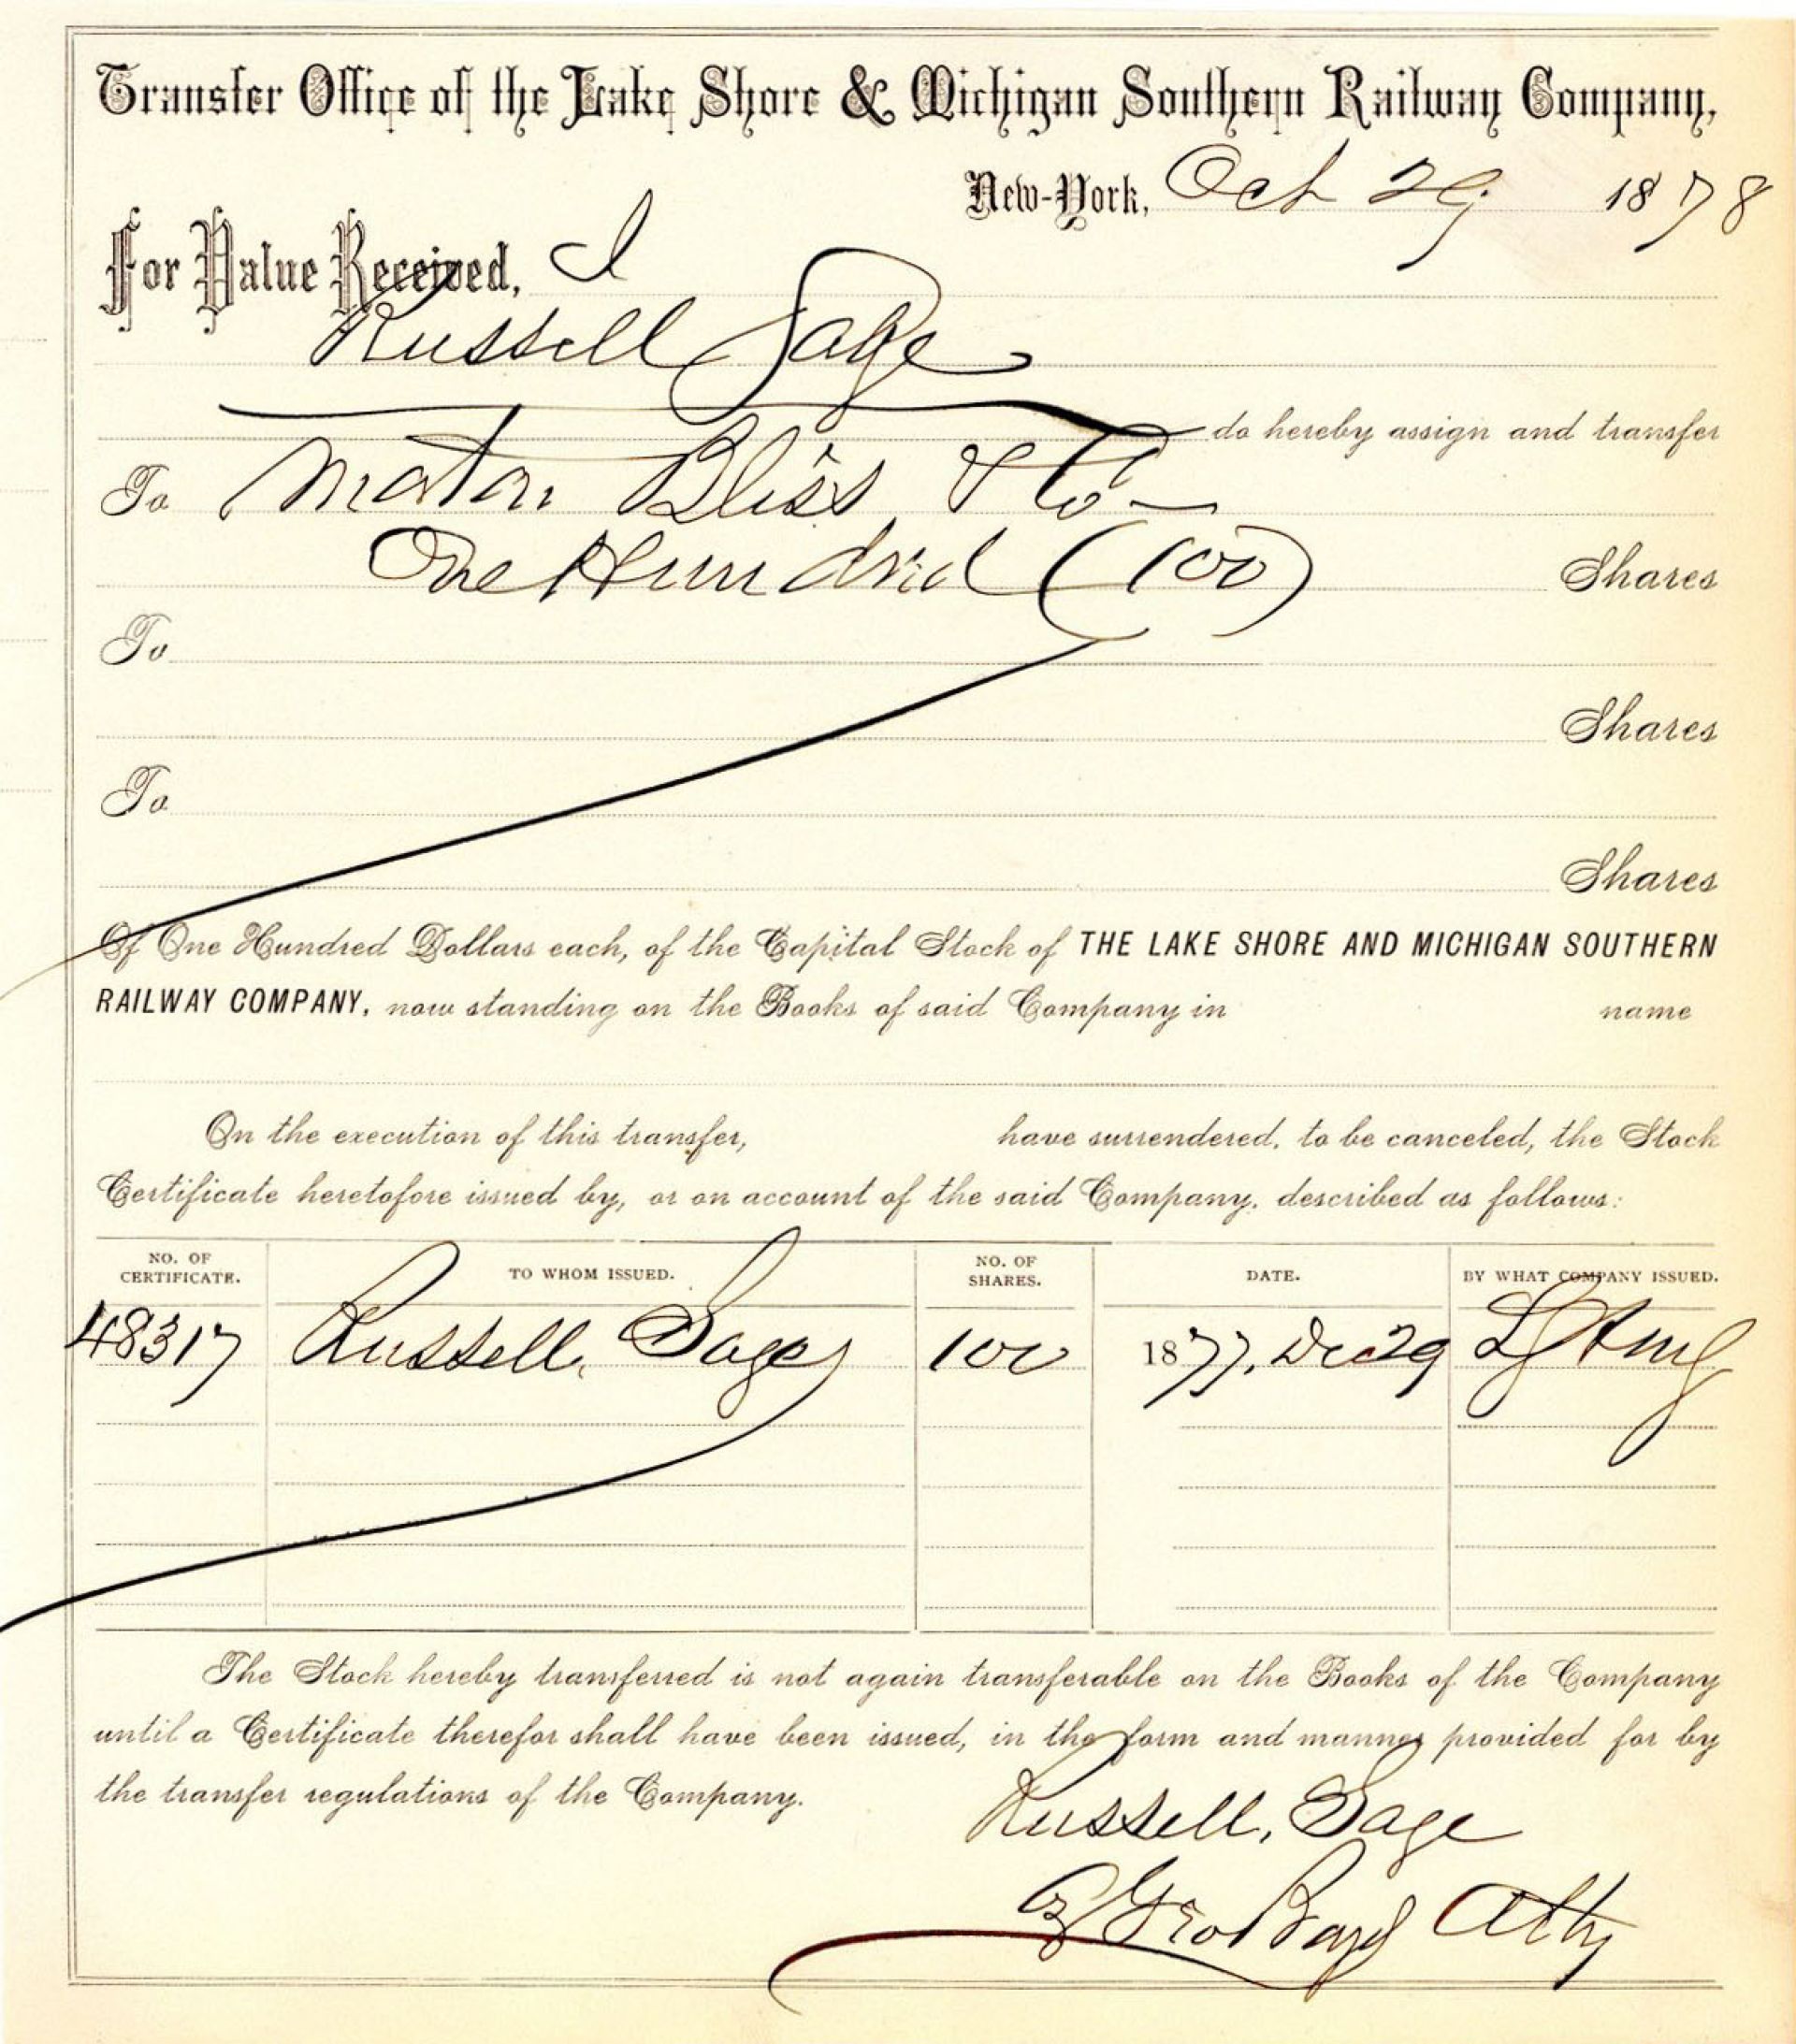 Transfer Office of the Lake Shore & Michigan Southern Railway Company,
New-York, Oct 29 1878
For Value Received, I
Russell Sage
do hereby assign and transfer
To Morton Bliss & Co
One Hundred (100) Shares
To
Shares
To
Shares
Of One Hundred Dollars each, of the Capital Stock of THE LAKE SHORE AND MICHIGAN SOUTHERN
RAILWAY COMPANY, now standing on the Books of said Company in name
On the execution of this transfer, have surrendered, to be canceled, the Stock
Certificate heretofore issued by, or on account of the said Company, described as follows:
NO. OF CERTIFICATE. TO WHOM ISSUED. NO. OF SHARES. DATE. BY WHAT COMPANY ISSUED.
48317 Russell Sage 100 1877, Dec 29
The Stock hereby transferred is not again transferable on the Books of the Company
until a Certificate therefor shall have been issued, in the form and manner provided for by
the transfer regulations of the Company.
Russell Sage
Atty